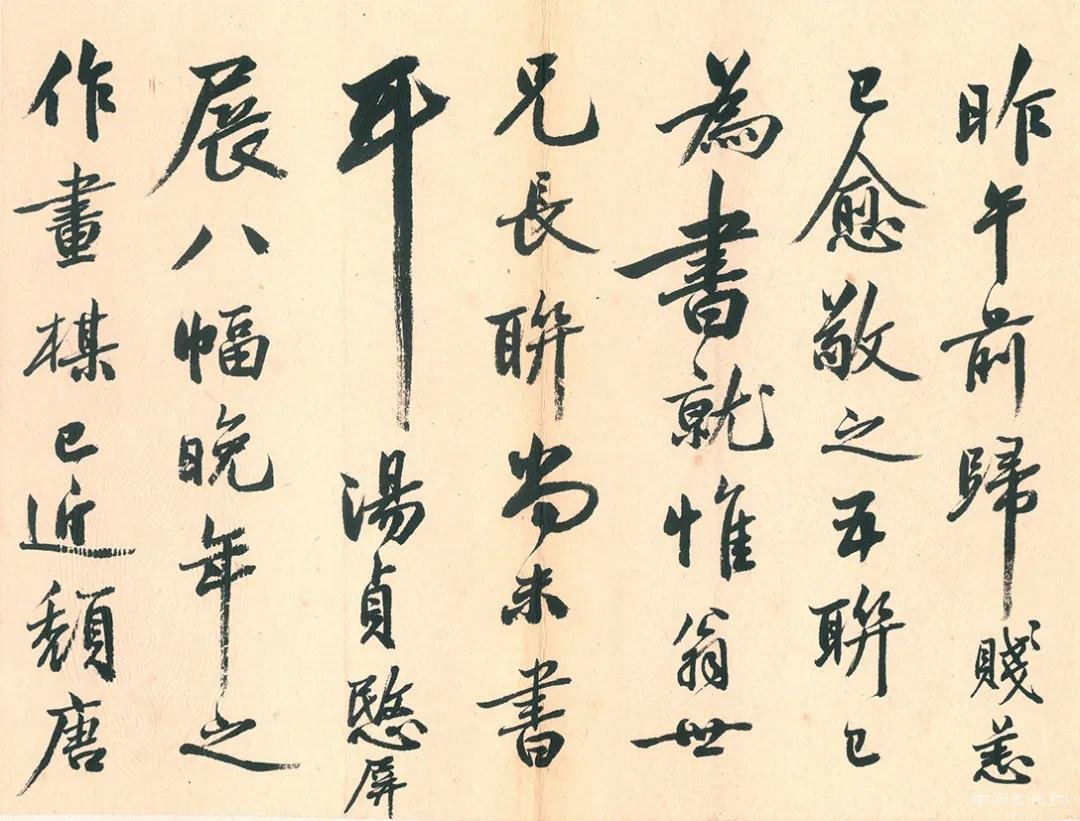 昨午前歸賤恙
已愈敬之五聯已
為書就惟翁世
兄長聯尚未書
耳湯貞愍屏
展八幅晚年之
作畫楳已近頹唐